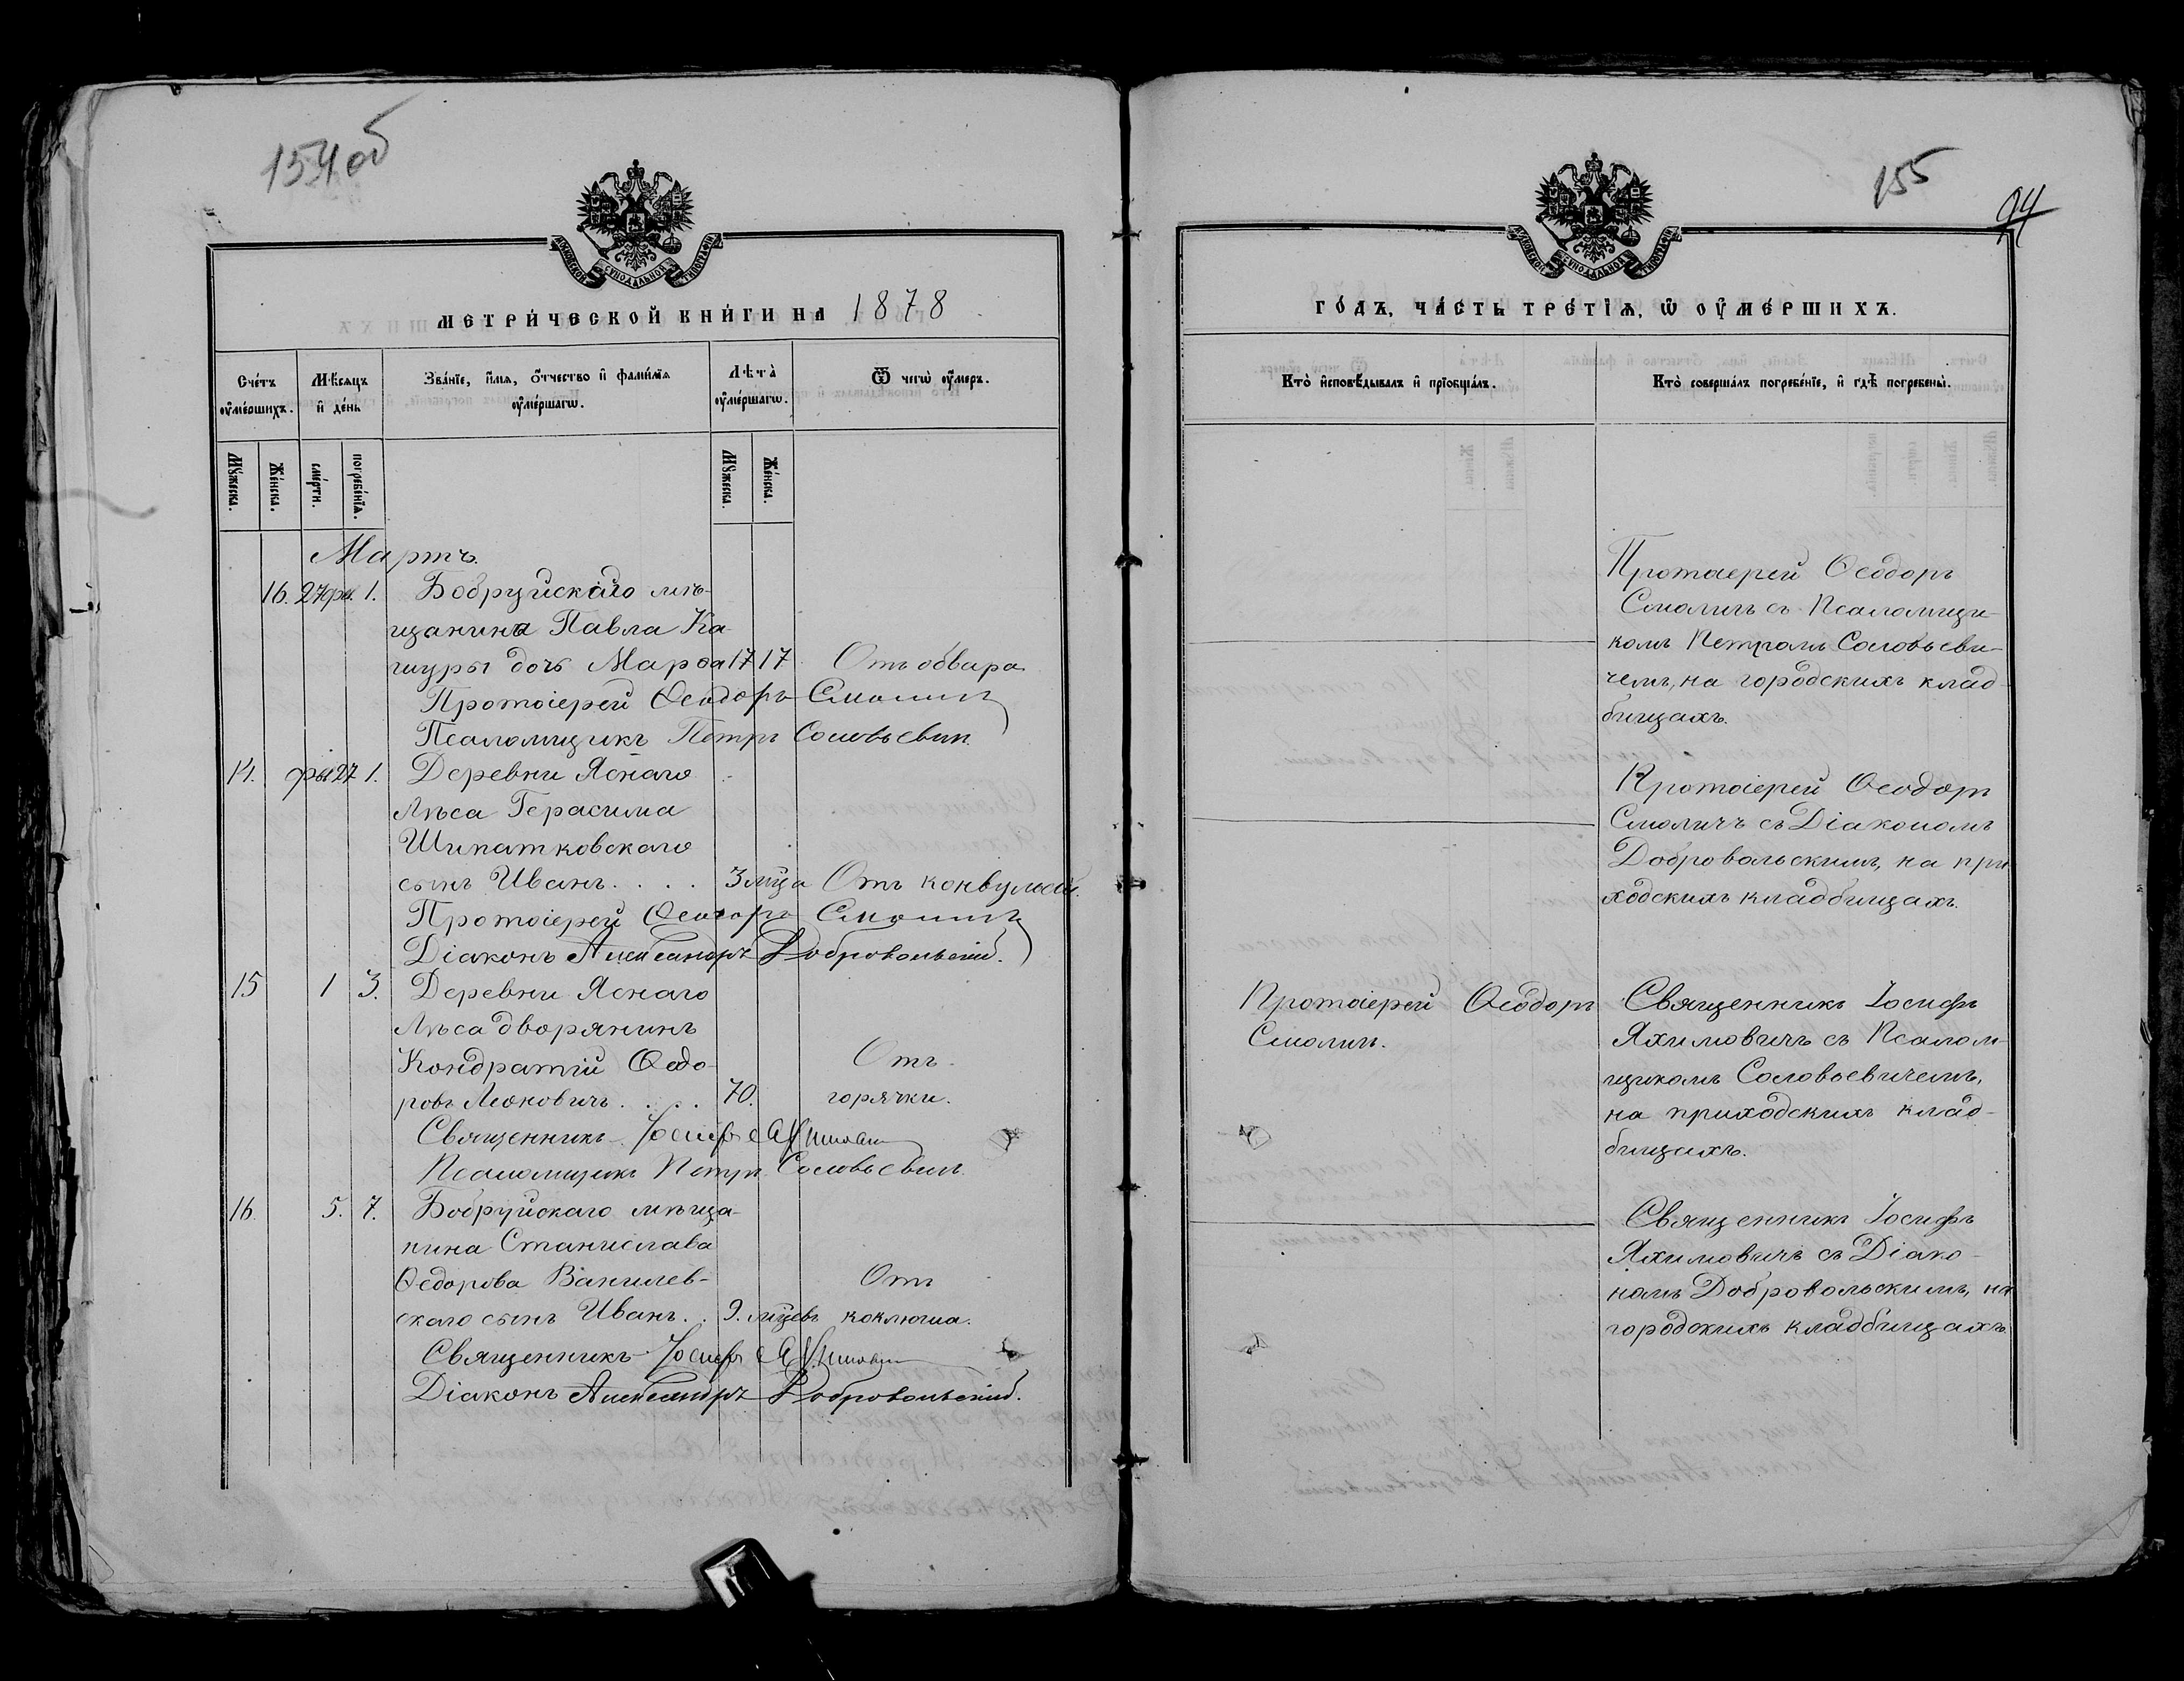 154 об
МОСКОВСКОЙ СѴНОДАЛЬНОЙ ТИПОГРАФІИ
МЕТРИ́ЧЕСКОЙ КНИ́ГИ НА 1878
Сче́тъ ᲂу҆ме́ршихъ.
Мѣ́сяцъ и҆ де́нь
Зва́нїе, и҆́мѧ, ѻ҆́тчество и҆ фами́лїѧ ᲂу҆ме́ршагѡ.
Лѣта̀ ᲂу҆ме́ршагѡ.
Ѿ чегѡ̀ ᲂу҆́меръ.
Мꙋ́жеска.
Же́нска.
сме́рти.
погребе́нїѧ.
Мꙋ́жеска.
Же́нска.
Мартъ.
16. 27 фев. 1. Бобруйскаго мѣ-
щанина Павла Ка-
шуры дочь Марѳа 17 17 Отъ обвара
Протоіерей Ѳеодоръ Смоличъ
Псаломщикъ Петръ Соловьевич.
14. фев 27 1. Деревни Яснаго
Лѣса Герасима
Шипатковскаго
сынъ Иванъ. . . . 3 мѣца Отъ конвульсій.
Протоіерей Ѳеодоръ Смоличъ
Діаконъ Александръ Добровольскій.
15 1 3. Деревни Яснаго
Лѣса дворянинъ
Кондратій Ѳедо- Отъ
ровъ Леоновичъ . . . . 70. горячки.
Священникъ Іосифъ Яхимович
Псаломщикъ Петръ Соловьевич.
16. 5. 7. Бобруйскаго мѣща-
нина Станислава
Ѳедорова Ванилев- Отъ
скаго сынъ Иванъ. . 9. мѣцевъ коклюша.
Священникъ Іосифъ Яхимович
Діаконъ Александръ Добровольскій.
155
94
МОСКОВСКОЙ СѴНОДАЛЬНОЙ ТИПОГРАФІИ
ГО́ДЪ, ЧА́СТЬ ТРЕ́ТЇѦ, Ѡ҆ ОУ҆МЕ́РШИХЪ.
Кто̀ и҆сповѣ́дывалъ и҆ прїѡбща́лъ.
Кто̀ соверша́лъ погребе́нїе, и҆ гдѣ̀ погребены̀.
Протоіерей Ѳеодоръ
Смоличъ съ Псаломщи-
комъ Петромъ Соловьеви-
чемъ, на городскихъ клад-
бищахъ.
Протоіерей Ѳеодоръ
Смоличъ съ Діакономъ
Добровольскимъ, на при
ходскихъ кладбищахъ.
Протоіерей Ѳеодоръ
Смолич.
Священникъ Іосифъ
Яхимовичъ съ Псалом-
щикомъ Соловьевичемъ,
на приходскихъ клад-
бищахъ.
Священникъ Іосифъ
Яхимовичъ съ Діако-
номъ Добровольскимъ, на
городскихъ кладбищахъ.